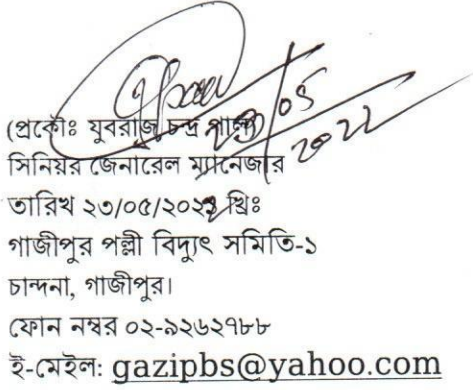 ২৩/০৫
২০২২
(প্রকৌঃ যুবরাজ চন্দ্র পাল)
সিনিয়র জেনারেল ম্যানেজার
তারিখ ২৩/০৫/২০২২ খ্রিঃ
গাজীপুর পল্লী বিদ্যুৎ সমিতি-১
চান্দনা, গাজীপুর।
ফোন নম্বর ০২-৯২৬২৭৮৮
ই-মেইল: gazipbs@yahoo.com